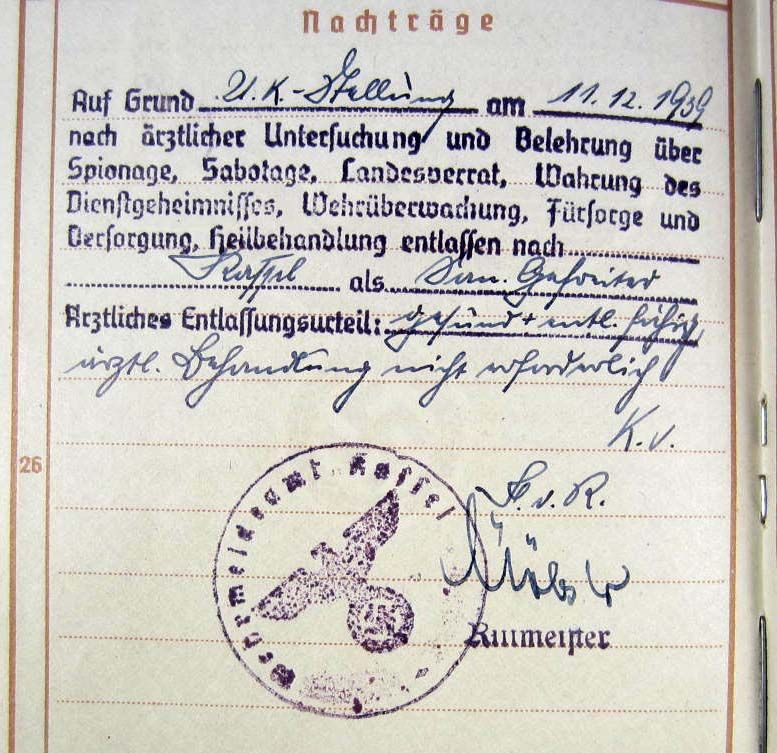 Nachträge
Auf Grund U.K.-Stellung am 11.12.1939
nach ärztlicher Untersuchung und Belehrung über
Spionage, Sabotage, Landesverrat, Wahrung des
Dienstgeheimnisses, Wehrüberwachung, Fürsorge und
Versorgung, Heilbehandlung entlassen nach
Kassel als San. Gefreiter
Ärztliches Entlassungsurteil: gesund + entl. fähig,
ärztl. Behandlung nicht erforderlich
K.v.
26
Wehrmeldeamt Kassel
Rittmeister